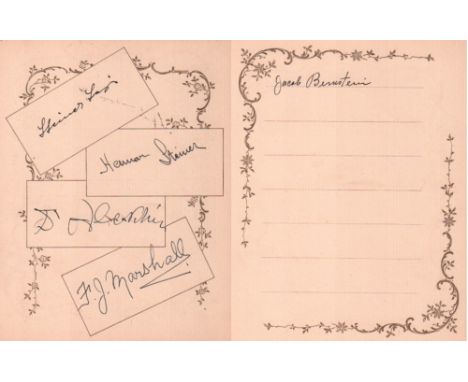 Steiner Lajos
Herman Steiner
F. J. Marshall
Jacob Bernstein